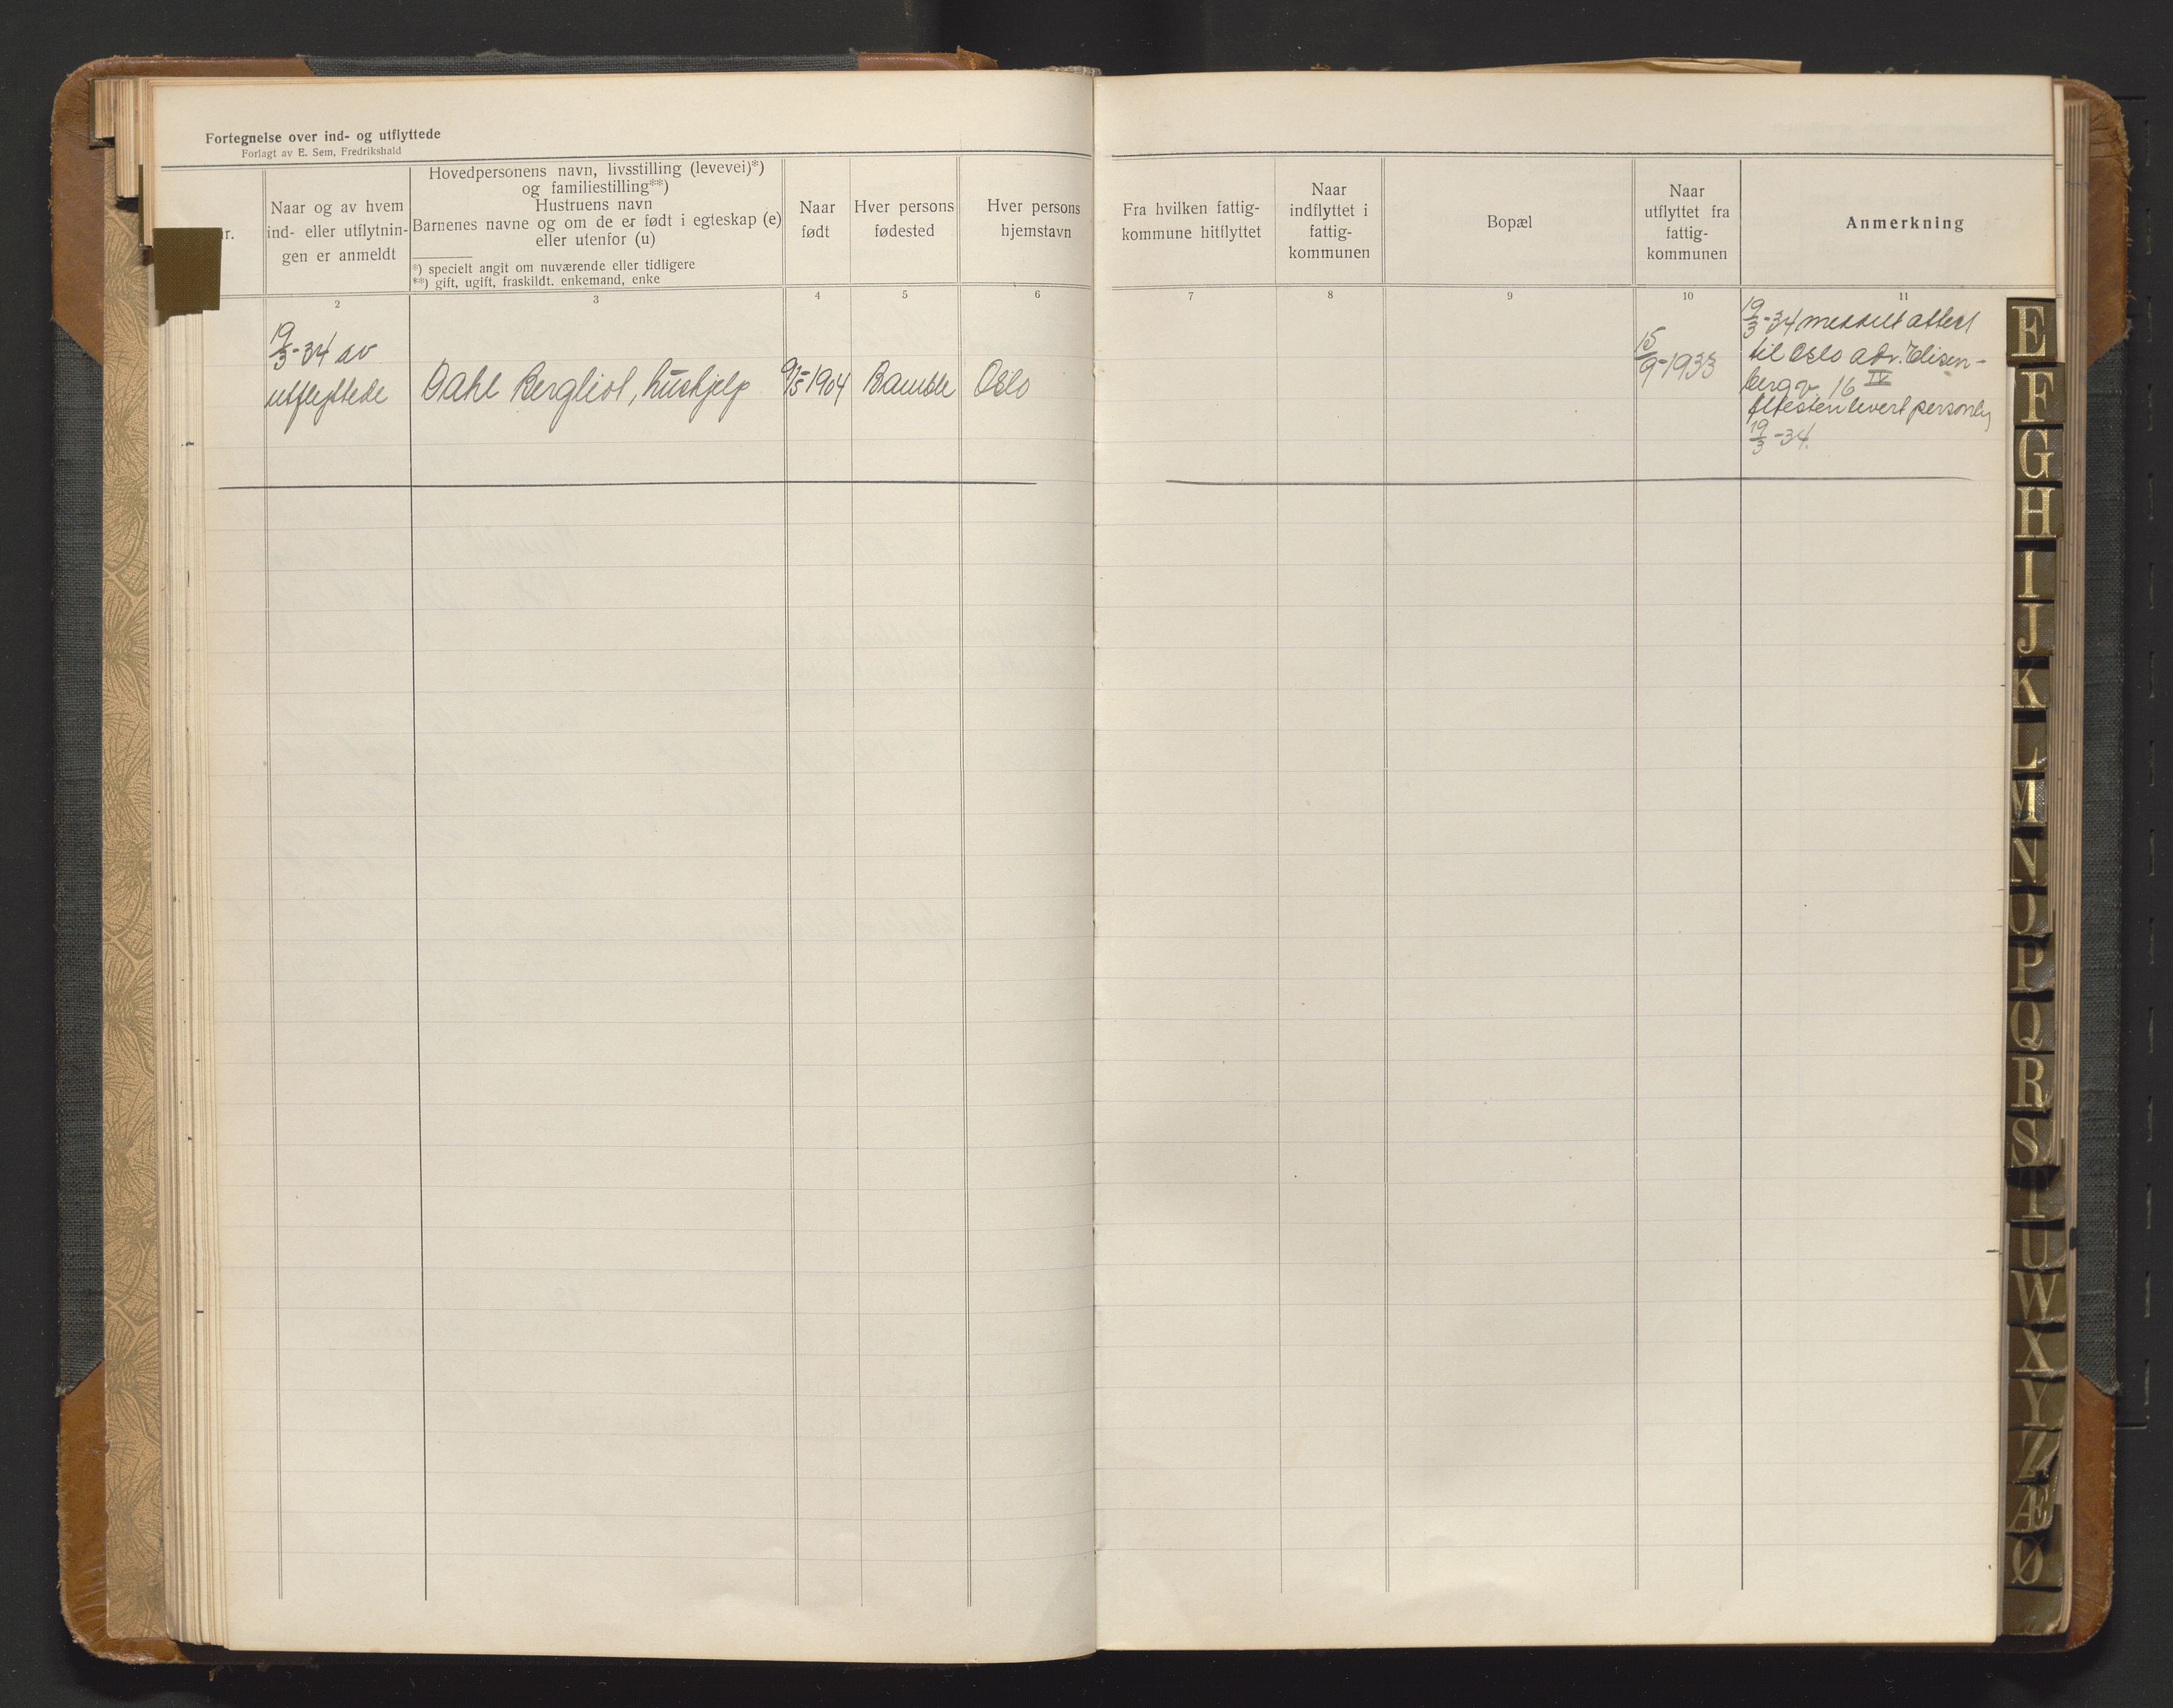 Fortegnelse over ind- og utflyttede
Forlagt av E. Sem, Fredrikshald
r.
Naar og av hvem
ind- eller utflytnin-
gen er anmeldt
Hovedpersonens navn, livsstilling (levevei)*)
og familiestilling**)
Hustruens navn
Barnenes navne og om de er født i egteskap (e)
eller utenfor (u)
*) specielt angit om nuværende eller tidligere
**) gift, ugift, fraskildt. enkemand, enke
Naar
født
Hver persons
fødested
Hver persons
hjemstavn
Fra hvilken fattig-
kommune hitflyttet
Naar
indflyttet i
fattig-
kommunen
Bopæl
Naar
utflyttet fra
fattig-
kommunen
Anmerkning
2 3 4 5 6 7 8 9 10 11
19/3-34 av
utflyttede
Dahl Bergliot, hushjelp
9/5-1904
Bamble
Oslo
15/9-1933
19/3-34 meddelt attest
til Oslo adr. Elisen-
bergv. 16 IV
Attesten levert personlig
19/3-34.
E
F
G
H
I
J
K
L
M
N
O
P
Q
R
S
T
U
W
X
Y
Z
Æ
Ø